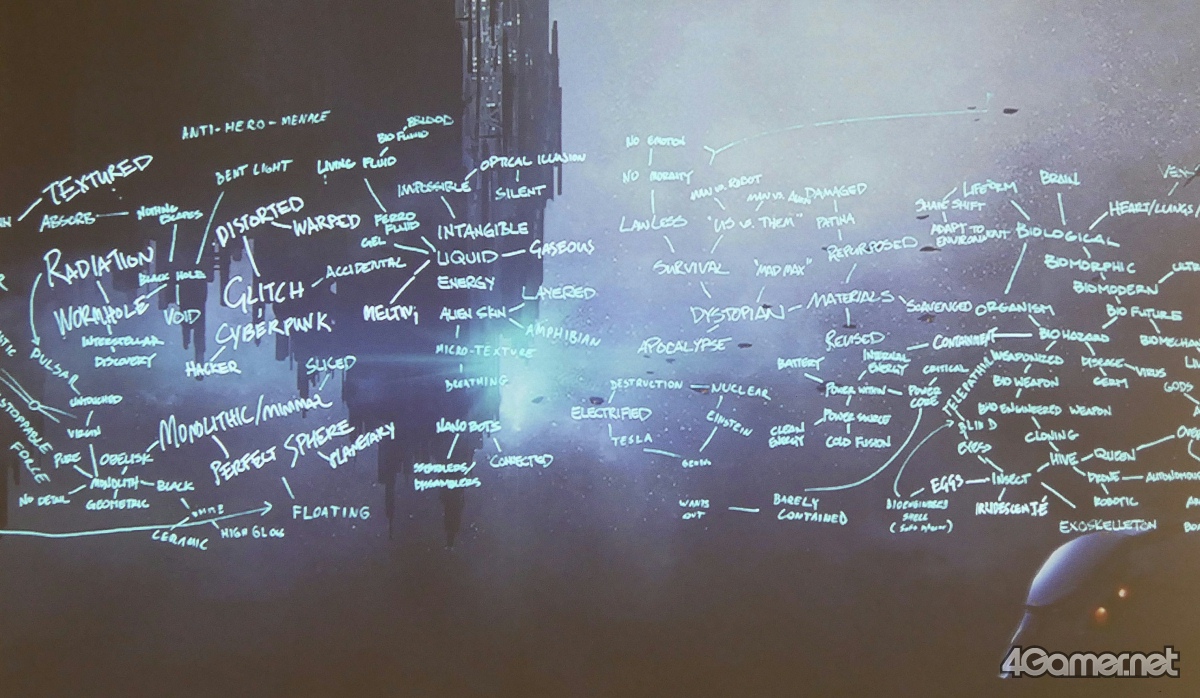 ANTI-HERO-MENACE
BLOOD
BIO FLUID
TEXTURED
BENT LIGHT
LIVING FLUID
OPTICAL ILLUSION
IMPOSSIBLE
SILENT
ABSORB
NOTHING
ESCAPES
DISTORTED
WARPED
FERRO
FLUID
INTANGIBLE
GEL
LIQUID
GASEOUS
RADIATION
BLACK HOLE
ACCIDENTAL
ENERGY
GLITCH
LAYERED
WORMHOLE
VOID
CYBERPUNK
ALIEN SKIN
AMPHIBIAN
INTERSTELLAR
DISCOVERY
HACKER
SLICED
MICRO-TEXTURE
PULSAR
BREATHING
UNTOUCHED
VIRGIN
MONOLITHIC/MINIMAL
NANO BOTS
PERFECT SPHERE
PLANETARY
FORCE
PURE
OBELISK
CONNECTED
NO DETAIL
MONOLITH
BLACK
GEOMETRIC
FLOATING
CERAMIC
HIGH GLOW
NO EMOTION
NO MORALITY
MAN VS. ROBOT
MAN VS. ALIEN
DAMAGED
LAWLESS
"US VS. THEM"
PATINA
REPURPOSED
SURVIVAL
"MAD MAX"
DYSTOPIAN
MATERIALS
SCAVENGED
APOCALYPSE
REUSED
DESTRUCTION
NUCLEAR
ELECTRIFIED
EINSTEIN
TESLA
BATTERY
INTERNAL
ENERGY
POWER WITHIN
CRITICAL
POWER
CORE
POWER SOURCE
CLEAN
ENERGY
COLD FUSION
WANTS
OUT
BARELY
CONTAINED
LIFEFORM
BRAIN
SHAPE SHIFT
ADAPT TO
ENVIRONMENT
BIOLOGICAL
HEART/LUNGS/
BIOMORPHIC
BIOMODERN
ORGANISM
BIO FUTURE
CONTAINMENT
BIO HAZARD
BIOMECHAN
WEAPONIZED
DISEASE
VIRUS
GERM
GODS
TELEPATHIC
BIO WEAPON
BIO ENGINEERED WEAPON
BLIND
EYES
CLONING
HIVE
QUEEN
EGGS
INSECT
DRONE
AUTONOMOUS
BIOENGINEERED
SHELL
IRRIDESCENT
ROBOTIC
EXOSKELLETON
4Gamer.net